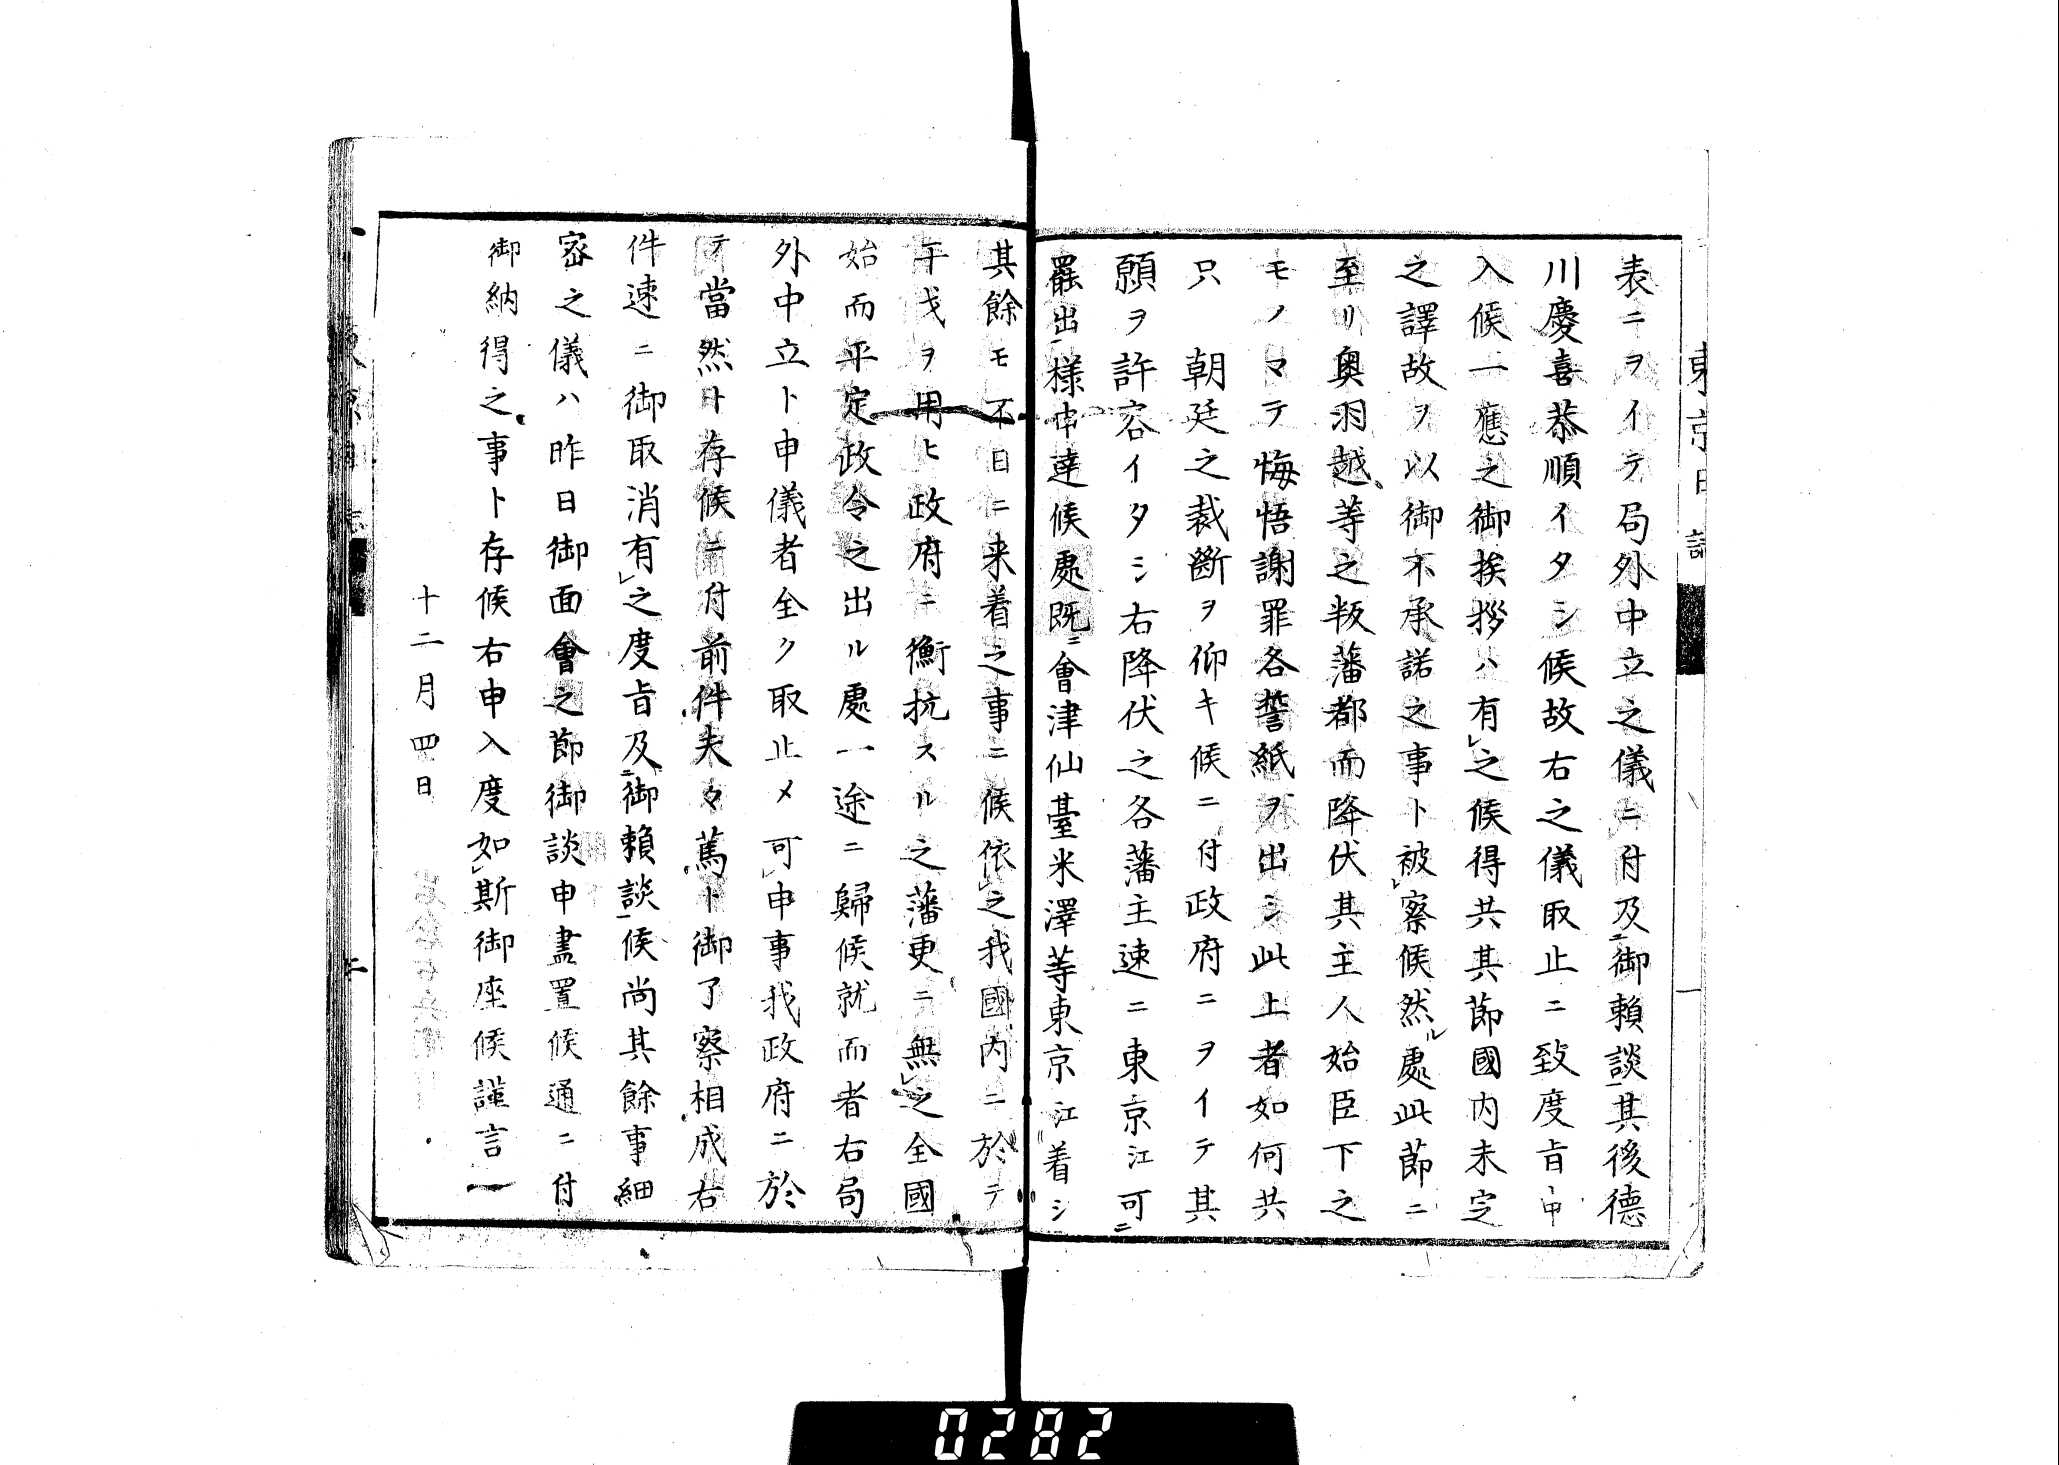 表ニヲイテ局外中立之儀ニ付及ニ御賴談一其後德
川慶喜恭順イタシ候故右之儀取止ニ致度旨申
入候一應之御挨拶ハ有レ之候得共其節國内未定
之譯故ヲ以御不承諾之事ト被レ察候然ル處此節ニ
至リ奥羽越等之叛藩都而降伏其主人始臣下之
モノマテ悔悟謝罪各誓紙ヲ出シ此上者如何共
只　朝廷之裁斷ヲ仰キ候ニ付政府ニヲイテ其
願ヲ許容イタシ右降伏之各藩主速ニ東京江可ニ
罷出一様申達候處既ニ會津仙臺米澤等東京江着シ
其餘モ不日ニ来着之事ニ候依レ之我國内ニ於テ
干戈ヲ用ヒ政府ニ衡抗スル之藩更ニ無レ之全國
始而平定政令之出ル處一途ニ歸候就而者右局
外中立ト申儀者全ク取止メ可レ申事我政府ニ於
テ當然ト存候ニ付前件夫々篤ト御了察相成右
件速ニ御取消有レ之度旨及ニ御賴談一候尚其餘事細
密之儀ハ昨日御面會之節御談申盡置候通ニ付
御納得之事ト存候右申入度如レ斯御座候謹言
十二月四日
東京
二
0282